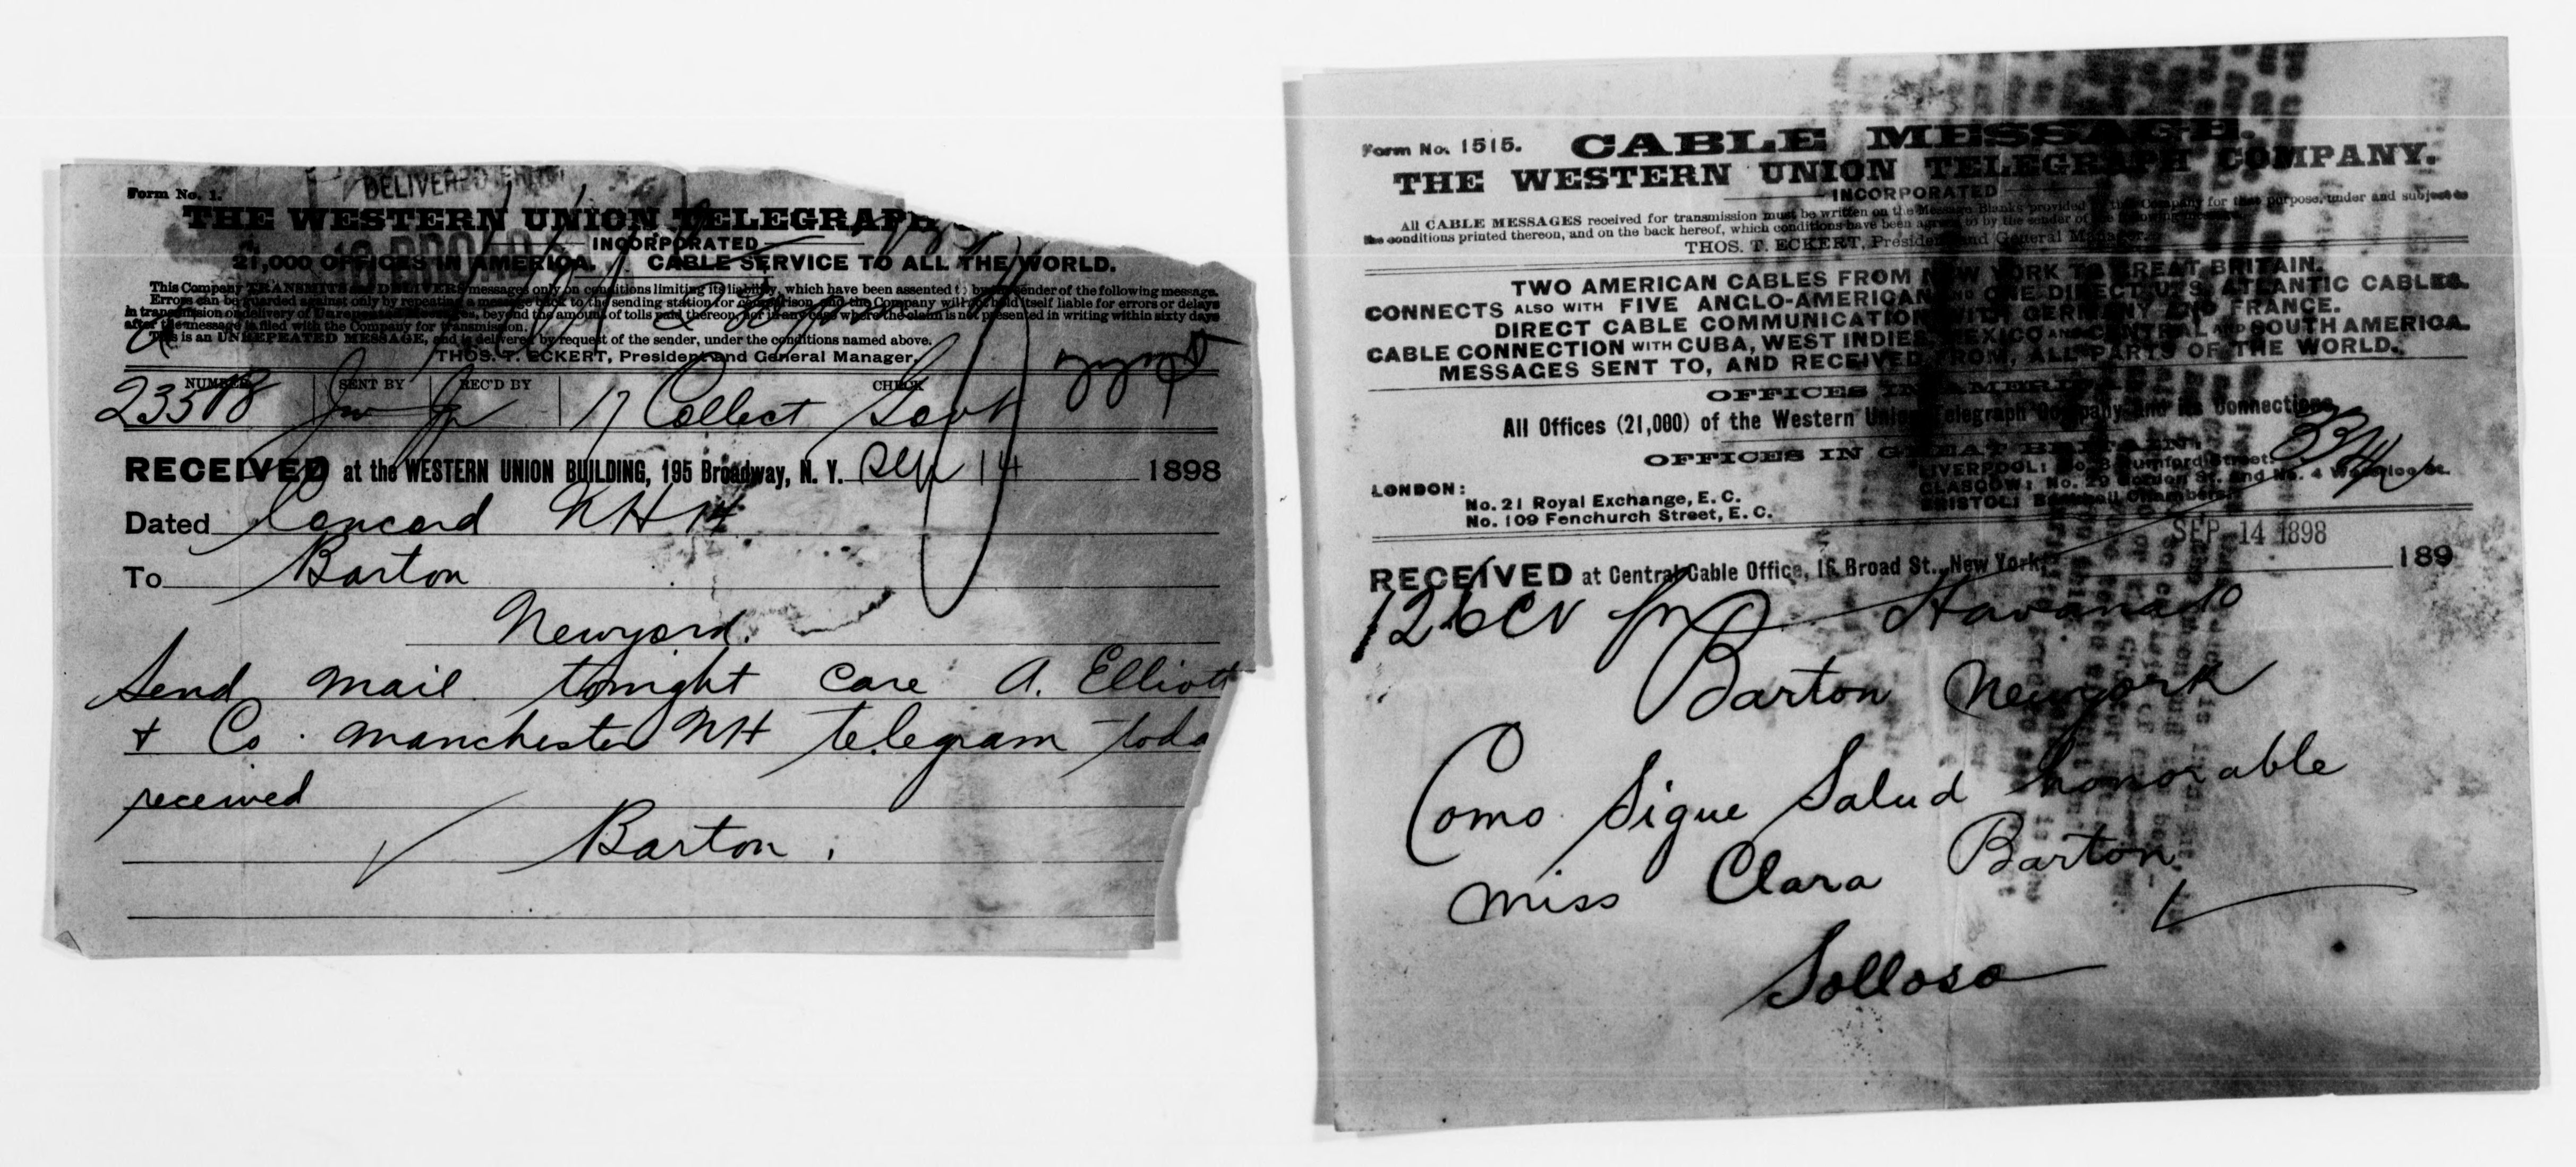 Form No. 1.
THE WESTERN UNION TELEGRAPH
INCORPORATED
21,000 OFFICES IN AMERICA. CABLE SERVICE TO ALL THE WORLD.
This Company TRANSMITS and DELIVERS messages only on conditions limiting its liability, which have been assented to by the sender of the following message.
Errors can be guarded against only by repeating a message back to the sending station for comparison, and the Company will not hold itself liable for errors or delays
in transmission or delivery of Unrepeated Messages, beyond the amount of tolls paid thereon, nor in any case where the claim is not presented in writing within sixty days
after the message is filed with the Company for transmission.
This is an UNREPEATED MESSAGE, and is delivered by request of the sender, under the conditions named above.
THOS. T. ECKERT, President and General Manager.
NUMBER SENT BY REC'D BY CHECK
17 Collect Govt
RECEIVED at the WESTERN UNION BUILDING, 195 Broadway, N. Y. Sep 14 1898
Dated Concord NH 14
To Barton
Newyord.
Send mail tonight care A. Elliott
+ Co. manchester NH telegram toda
received
Barton.
Form No. 1515.
CABLE MESSAGE.
THE WESTERN UNION TELEGRAPH COMPANY.
INCORPORATED
All CABLE MESSAGES received for transmission must be written on the Message Blanks provided by the Company for that purpose, under and subject to
the conditions printed thereon, and on the back hereof, which conditions have been agreed to by the sender of the following message.
THOS. T. ECKERT, President and General Manager.
TWO AMERICAN CABLES FROM NEW YORK TO GREAT BRITAIN.
CONNECTS ALSO WITH FIVE ANGLO-AMERICAN AND ONE DIRECT U.S. ATLANTIC CABLES.
DIRECT CABLE COMMUNICATION WITH GERMANY AND FRANCE.
CABLE CONNECTION WITH CUBA, WEST INDIES, MEXICO AND CENTRAL AND SOUTH AMERICA.
MESSAGES SENT TO, AND RECEIVED FROM, ALL PARTS OF THE WORLD.
OFFICES IN AMERICA:
All Offices (21,000) of the Western Union Telegraph Company and its Connections
OFFICES IN GREAT BRITAIN:
LONDON:
No. 21 Royal Exchange, E. C.
No. 109 Fenchurch Street, E. C.
LIVERPOOL:
GLASGOW: No. 29 Gordon St. and No. 4 Waterloo St.
BRISTOL:
SEP 14 1898
RECEIVED at Central Cable Office, 16 Broad St., New York, 189
Havana
Barton Newyork
Como Sigue Salud honorable
miss Clara Barton
Solloso